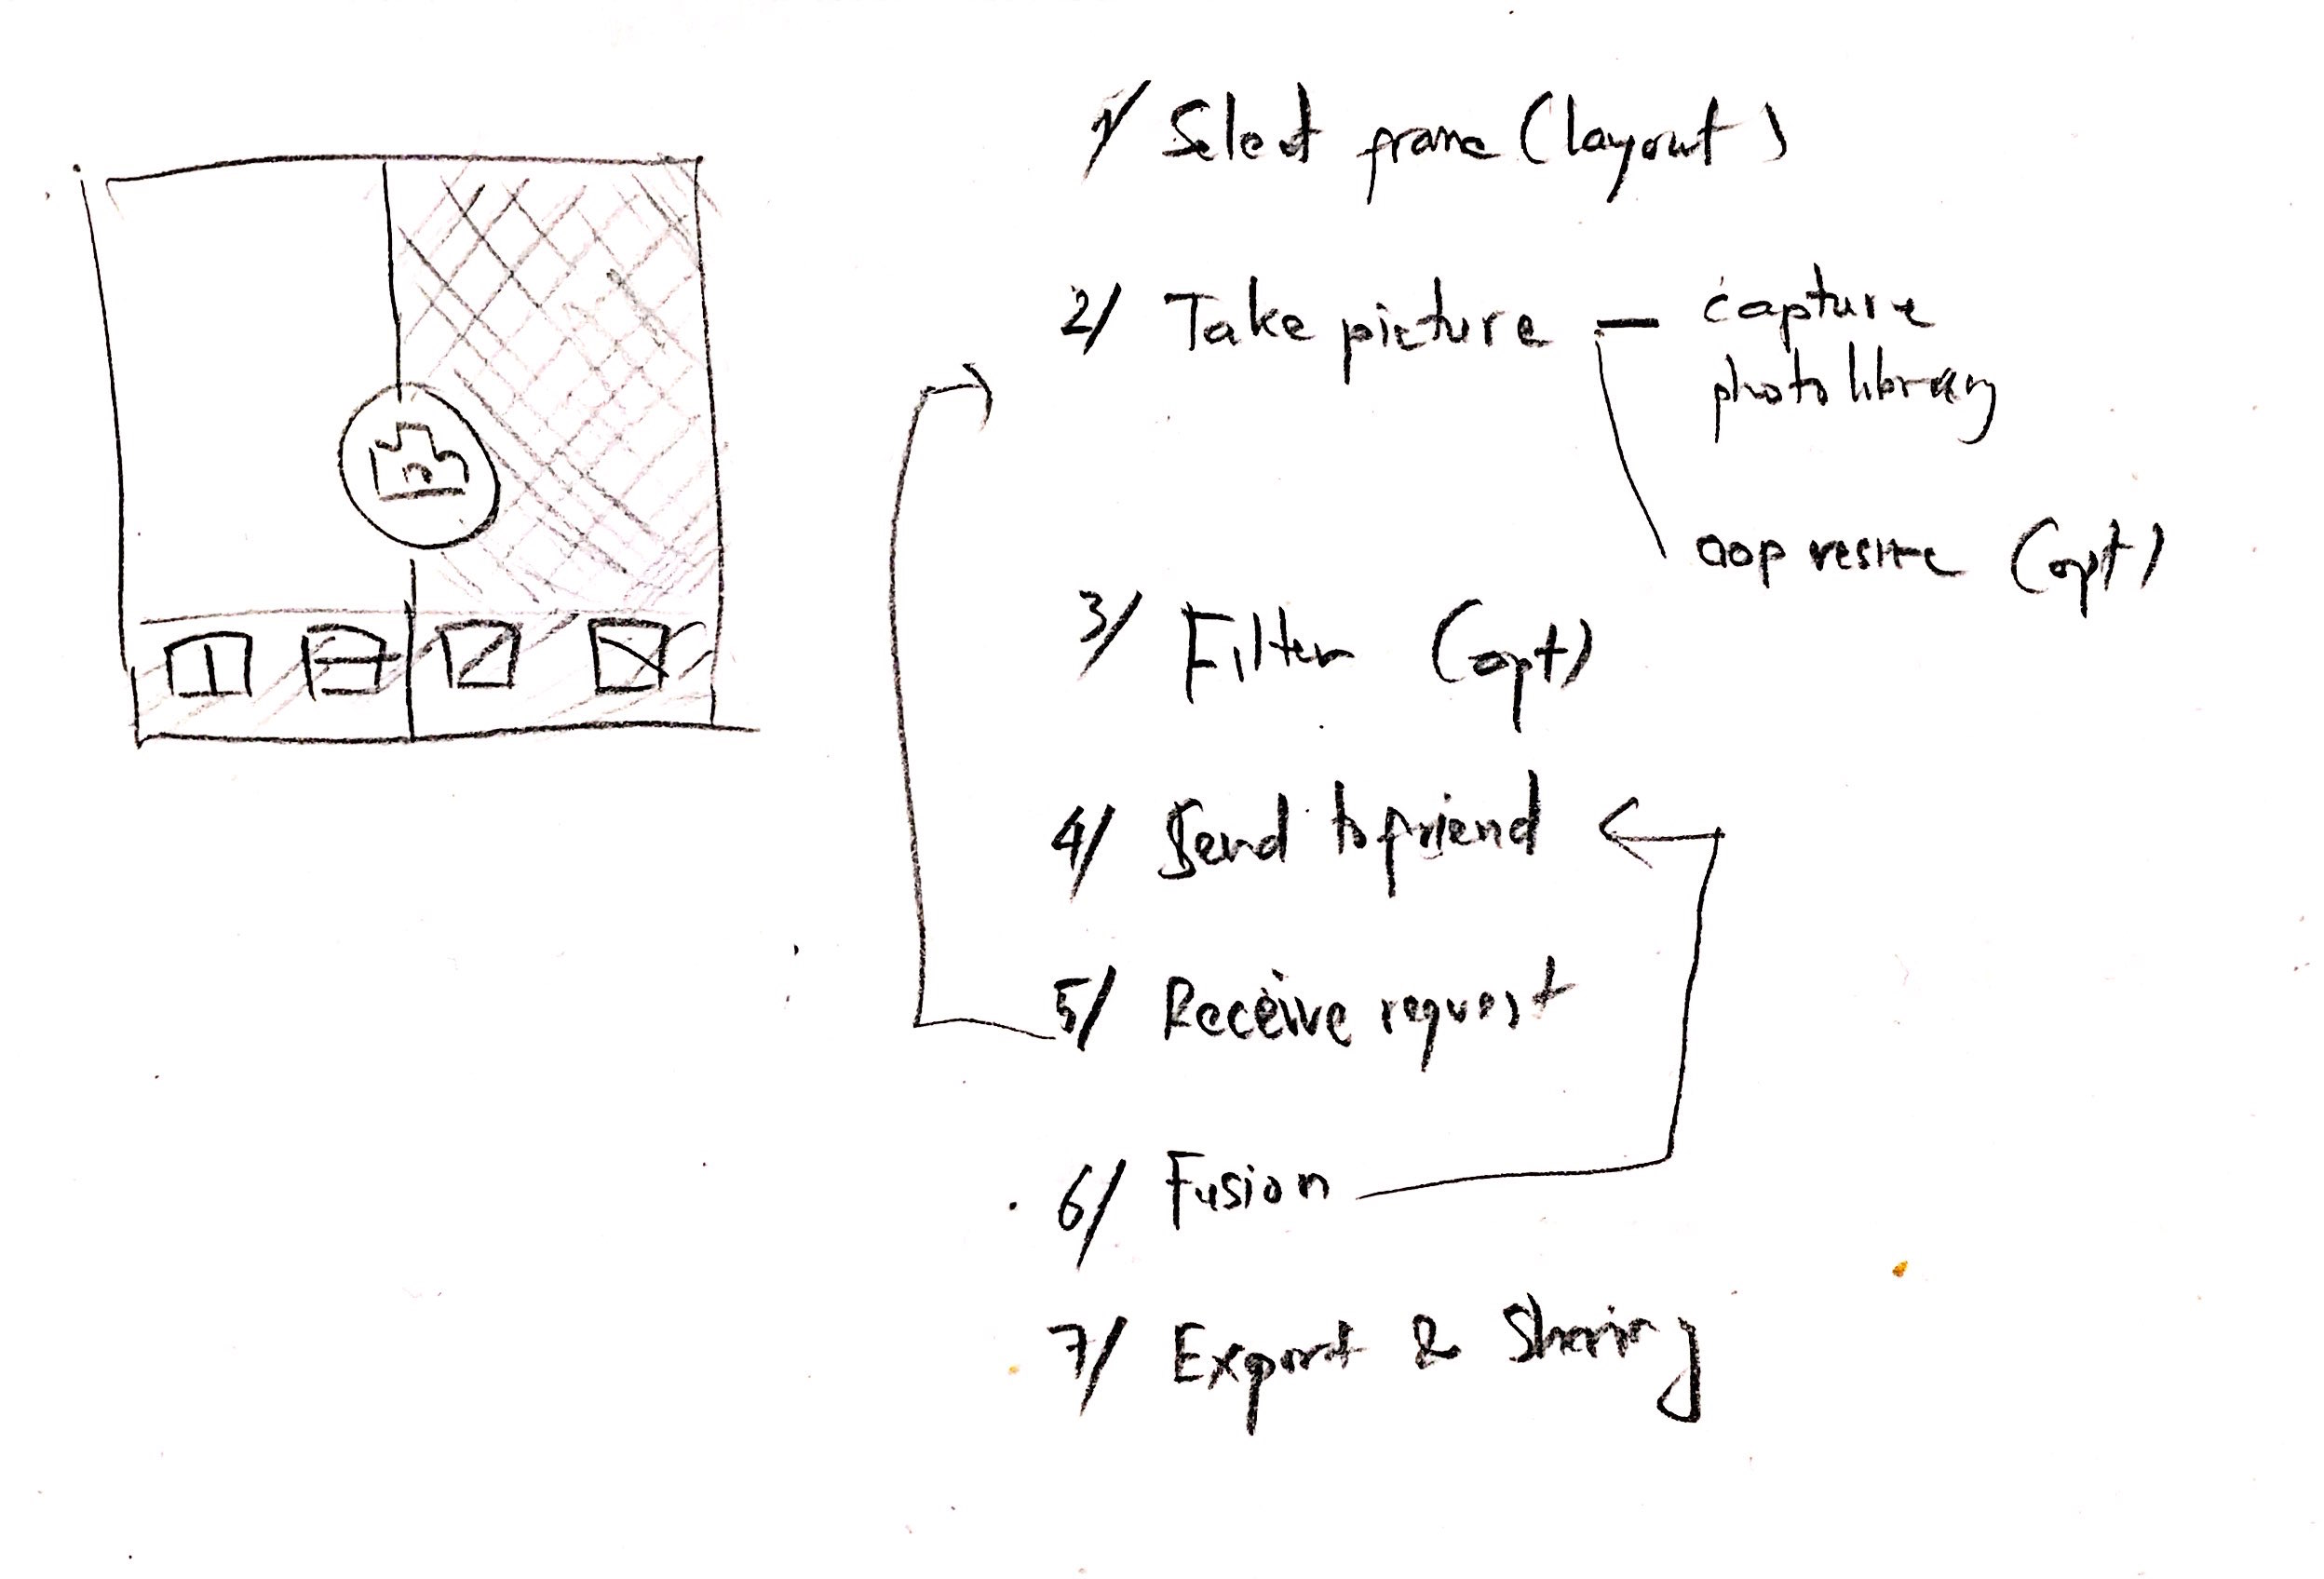 1/ Select frame (layout)
2/ Take picture — capture
photo library
resize (opt)
3/ Filter (opt)
4/ Send to friend
5/ Receive request
6/ Fusion
7/ Export & Sharing